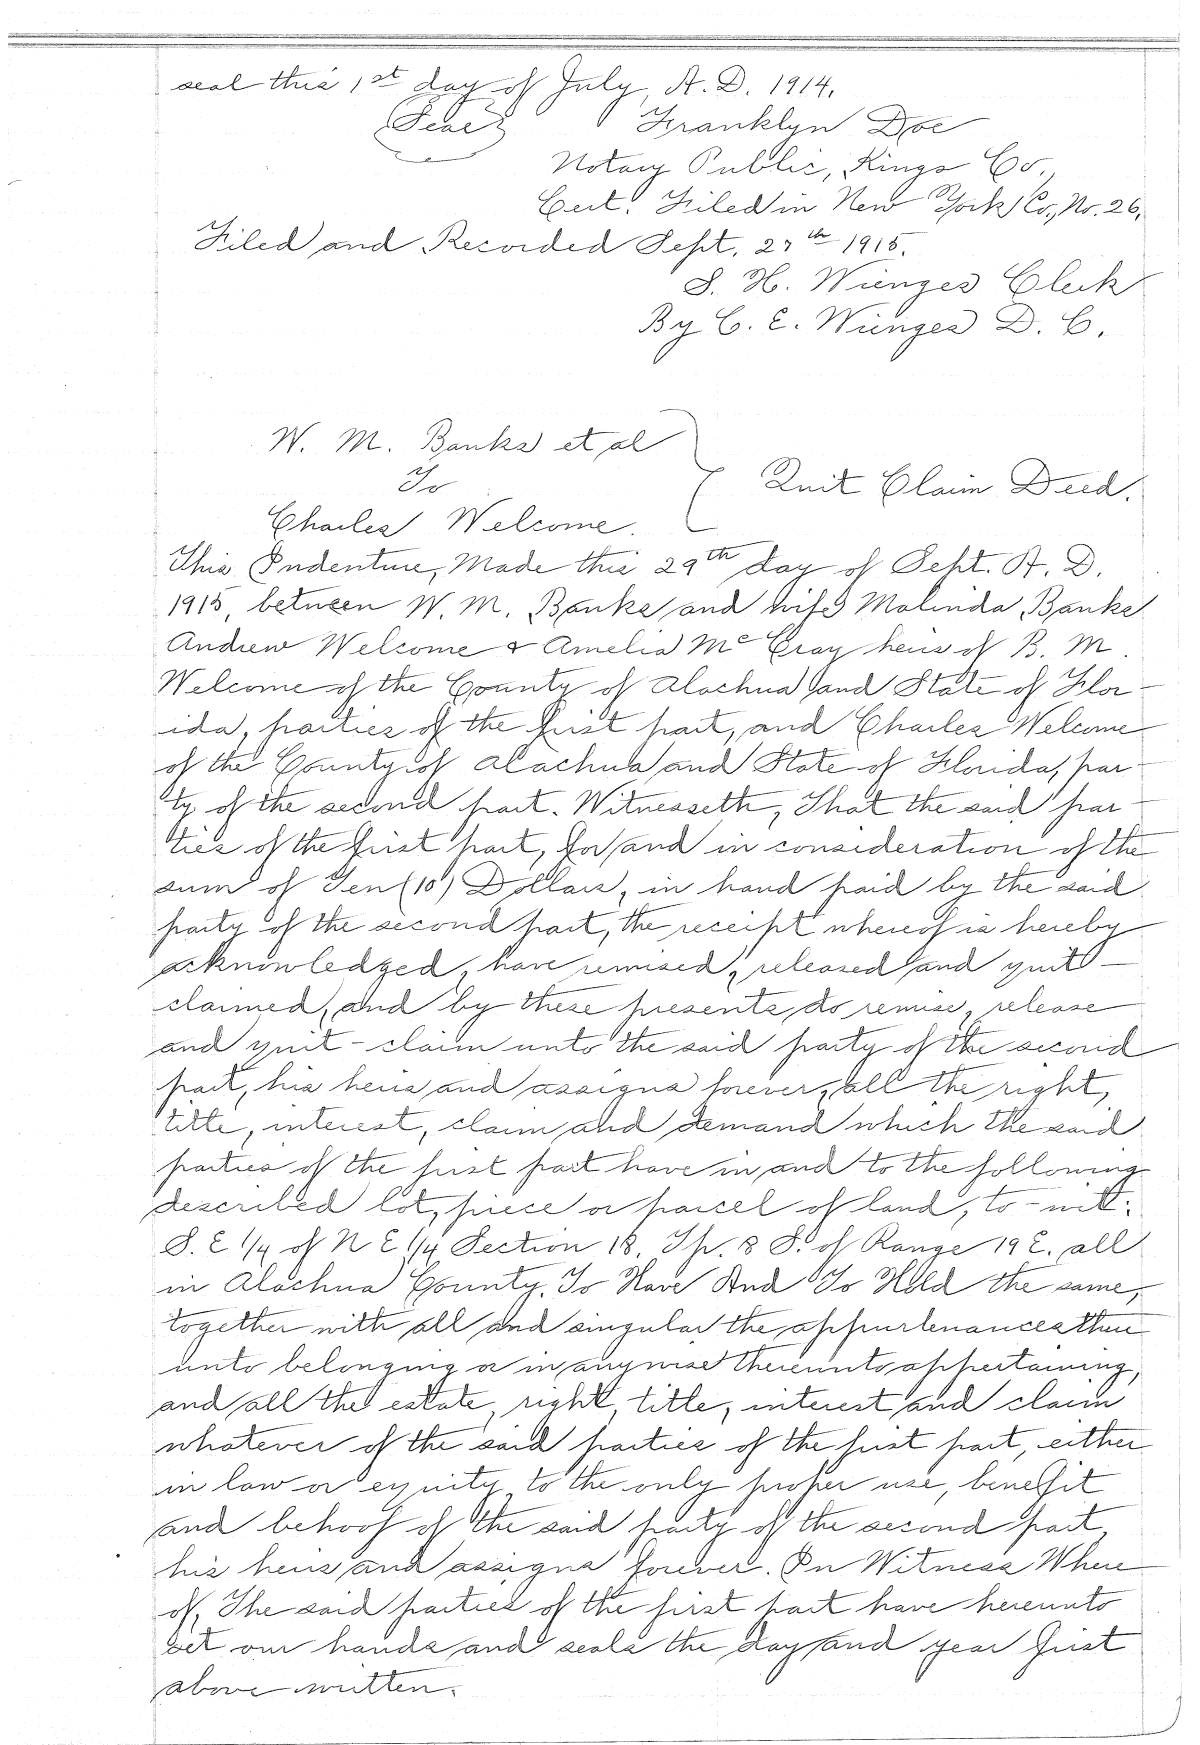 seal this 1st day of July, A. D. 1914.
(Seal) Franklyn Doe
Notary Public, Kings Co.,
Cert. Filed in New York Co., No. 26,
Filed and Recorded Sept. 27th 1915.
S. H. Wienges Clerk
By C. E. Wienges D. C.
W. M. Banks et al
To
Quit Claim Deed.
Charles Welcome.
This Indenture, Made this 29th day of Sept. A. D.
1915, between W. M. Banks and wife Malinda Banks
Andrew Welcome & Amelia McCray heirs of B. M.
Welcome of the County of Alachua and State of Flor-
ida, parties of the first part, and Charles Welcome
of the County of Alachua and State of Florida, par-
ty of the second part. Witnesseth, That the said par-
ties of the first part, for and in consideration of the
sum of Ten (10) Dollars, in hand paid by the said
party of the second part, the receipt whereof is hereby
acknowledged, have remised, released and quit-
claimed, and by these presents do remise, release
and quit-claim unto the said party of the second
part, his heirs and assigns forever, all the right,
title, interest, claim and demand which the said
parties of the first part have in and to the following
described lot, piece or parcel of land, to-wit:
S. E 1/4 of N E 1/4 Section 18. Tp. 8 S. of Range 19 E. all
in Alachua County. To Have And To Hold the same,
together with all and singular the appurtenances there
unto belonging or in anywise thereunto appertaining,
and all the estate, right, title, interest and claim
whatever of the said parties of the first part, either
in law or equity, to the only proper use, benefit
and behoof of the said party of the second part,
his heirs and assigns forever. In Witness Where
of, The said parties of the first part have hereunto
set our hands and seals the day and year first
above written.